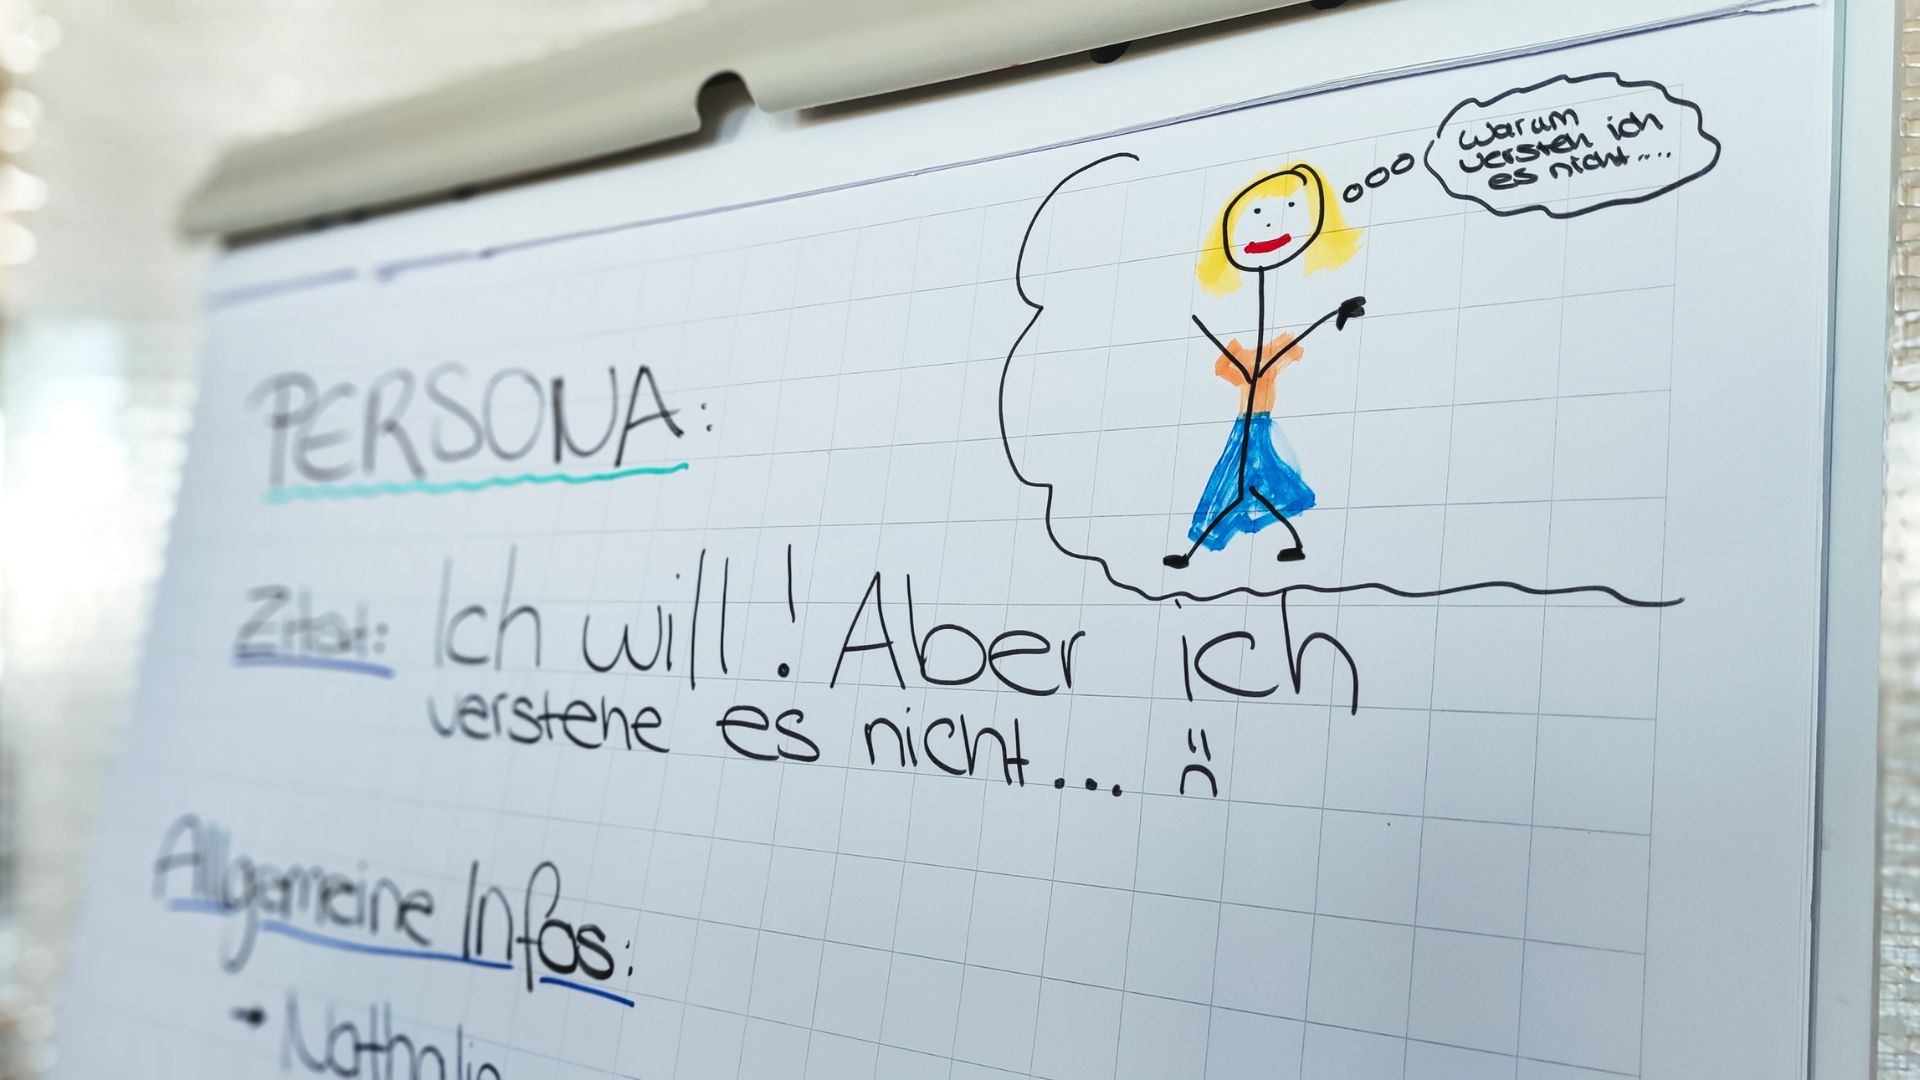 warum
versteh ich
es nicht....
PERSONA:
Zitat: Ich will! Aber ich
verstehe es nicht... :(
Allgemeine Infos:
→ Nathalie